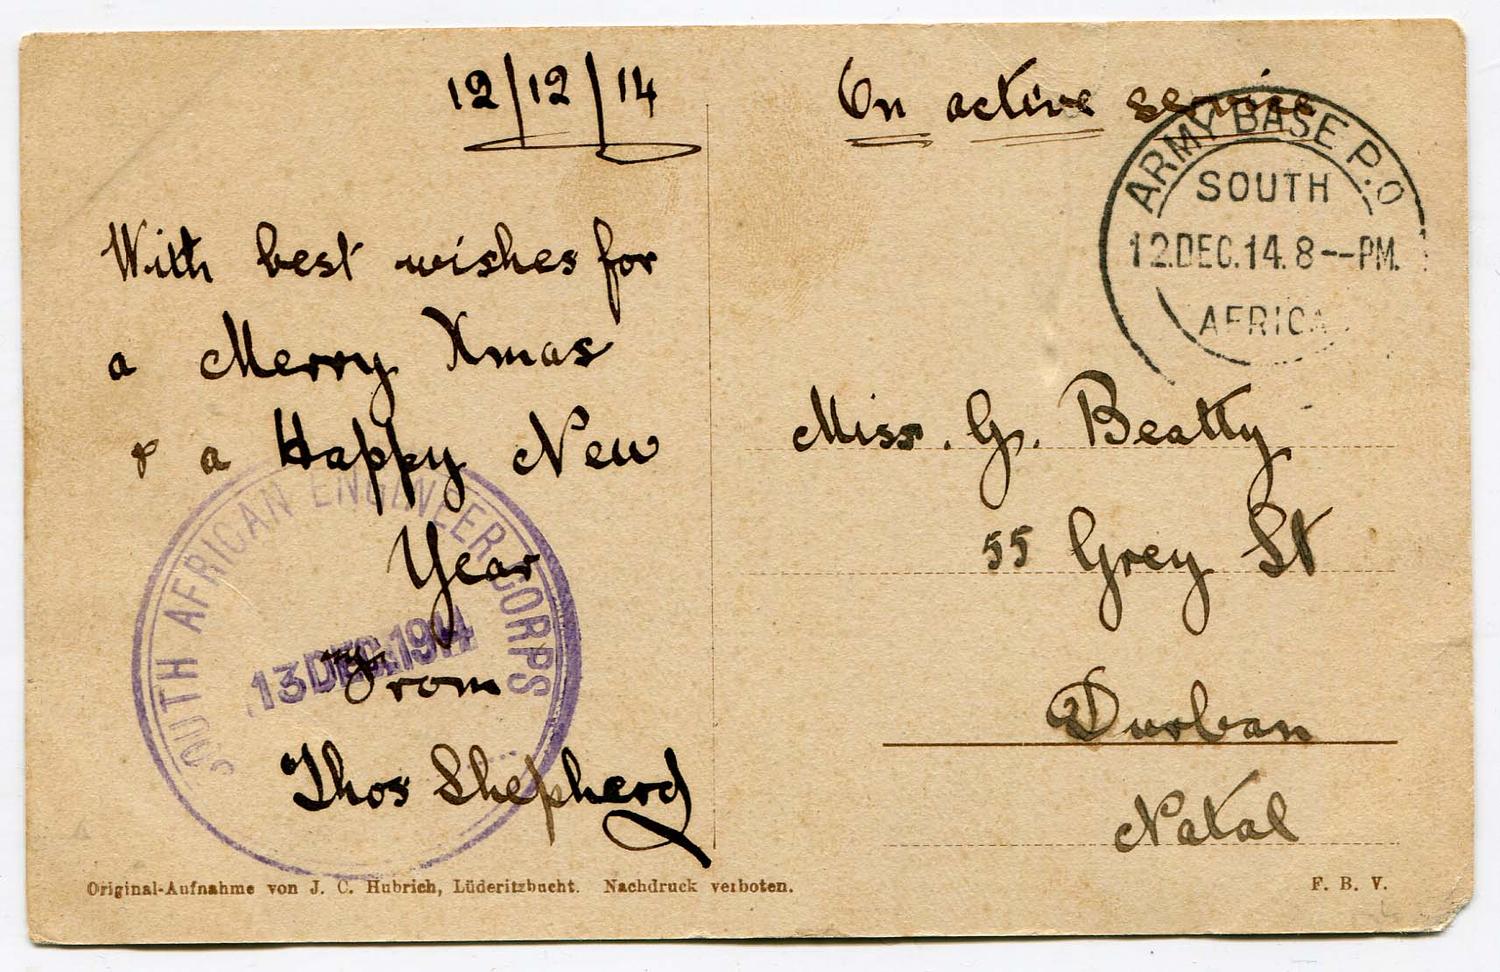 12/12/14
On active service
ARMY BASE P.O
SOUTH
12.DEC.14.8--PM.
AFRICA
With best wishes for
a Merry Xmas
& a Happy New
Year
From
Thos Shepherd
SOUTH AFRICAN ENGINEER CORPS
13 DEC. 1914
Miss. G. Beatty
55 Grey St
Durban
Natal
Original-Aufnahme von J. C. Hubrich, Lüderitzbucht. Nachdruck verboten.
F. B. V.